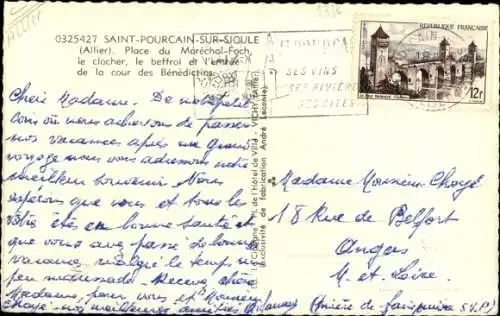 3336
Allier
0325427 SAINT-POURCAIN-SUR-SIOULE
(Allier). Place du Maréchal-Foch,
le clocher, le beffroi et l'entrée
de la cour des Bénédictins.
SES VINS
SES RIVIÈRES
SES SITES
REPUBLIQUE FRANÇAISE
12F
Chère Madame. De
où nous achevons de passer
nos vacances après un grand
voyage nous vous adressons notre
meilleur souvenir. Nous
espérons que vous et tous les
vôtres êtes en bonne santé et
que vous avez passé de bonnes
vacances malgré le temps un
peu maussade. Recevez chère
Madame, pour vous et Monsieur
Choyé nos meilleures amitiés
Madame Monsieur Choyé
18 Rue de Belfort
Angers
M. et Loire
S.V.P.)
de l'Hôtel de Ville, VICHY (Allier)
(exclusivité de fabrication André Leconte)